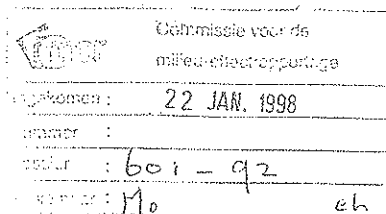 Commissie voor de
milieu-effectrapportage
ingekomen : 22 JAN. 1998
nummer :
dossier : 601 - 92
: Mo eh